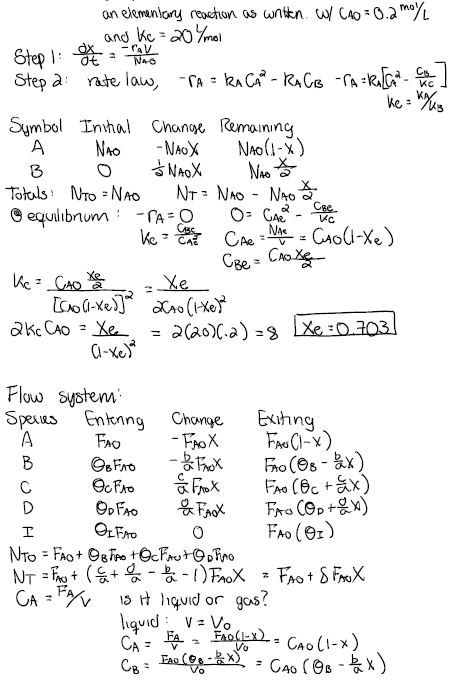 an elementary reaction as written. w/ CA0 = 0.2 mol/L
and Kc = 20 L/mol
Step 1: dx/dt = -rAV/NA0
Step 2: rate law, -rA = kACA² - kACB -rA = kA[CA² - CB/KC]
Ke = KA/KB
Symbol Initial Change Remaining
A NA0 -NA0X NA0(1-X)
B 0 ½NA0X NA0 X/2
Totals: NT0 = NA0 NT = NA0 - NA0 X/2
@ equilibrium: -rA = 0 0 = CAe² - CBe/KC
Kc = CBe/CAe² CAe = NAe/V = CA0(1-Xe)
CBe = CA0 Xe/2
Kc = CA0 Xe/2 / [CA0(1-Xe)]² = Xe / 2CA0(1-Xe)²
2KcCA0 = Xe/(1-Xe)² = 2(20)(.2) = 8 Xe = 0.703
Flow system:
Species Entering Change Exiting
A FA0 -FA0X FA0(1-X)
B ΘBFA0 -b/a FA0X FA0(ΘB - b/a X)
C ΘCFA0 c/a FA0X FA0(ΘC + c/a X)
D ΘDFA0 d/a FA0X FA0(ΘD + d/a X)
I ΘIFA0 0 FA0(ΘI)
NT0 = FA0 + ΘBFA0 + ΘCFA0 + ΘDFA0
NT = FA0 + (c/a + d/a - b/a - 1)FA0X = FA0 + δFA0X
CA = FA/V is it liquid or gas?
liquid: V = V0
CA = FA/V = FA0(1-X)/V0 = CA0(1-X)
CB = FA0(ΘB - b/a X)/V0 = CA0(ΘB - b/a X)